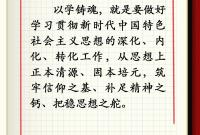 以学铸魂，就是要做好
学习贯彻新时代中国特色
社会主义思想的深化、内
化、转化工作，从思想上
正本清源、固本培元，筑
牢信仰之基、补足精神之
钙、把稳思想之舵。